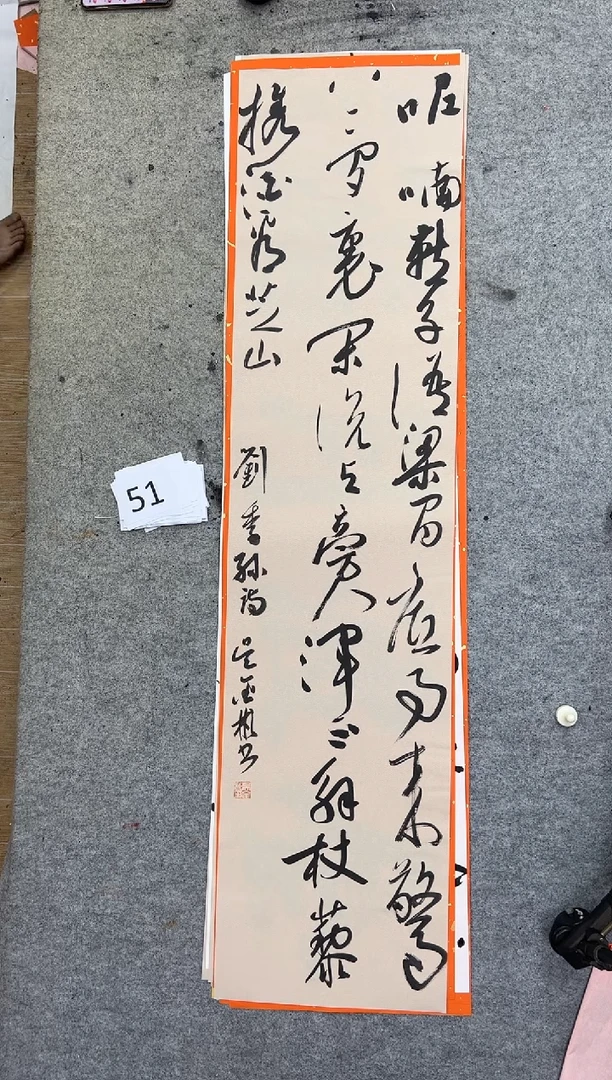 呢喃燕子語梁間底事来驚
夢裏閑說与旁人渾不解杖藜
携酒看芝山
劉季孫詩 吴金 书
51